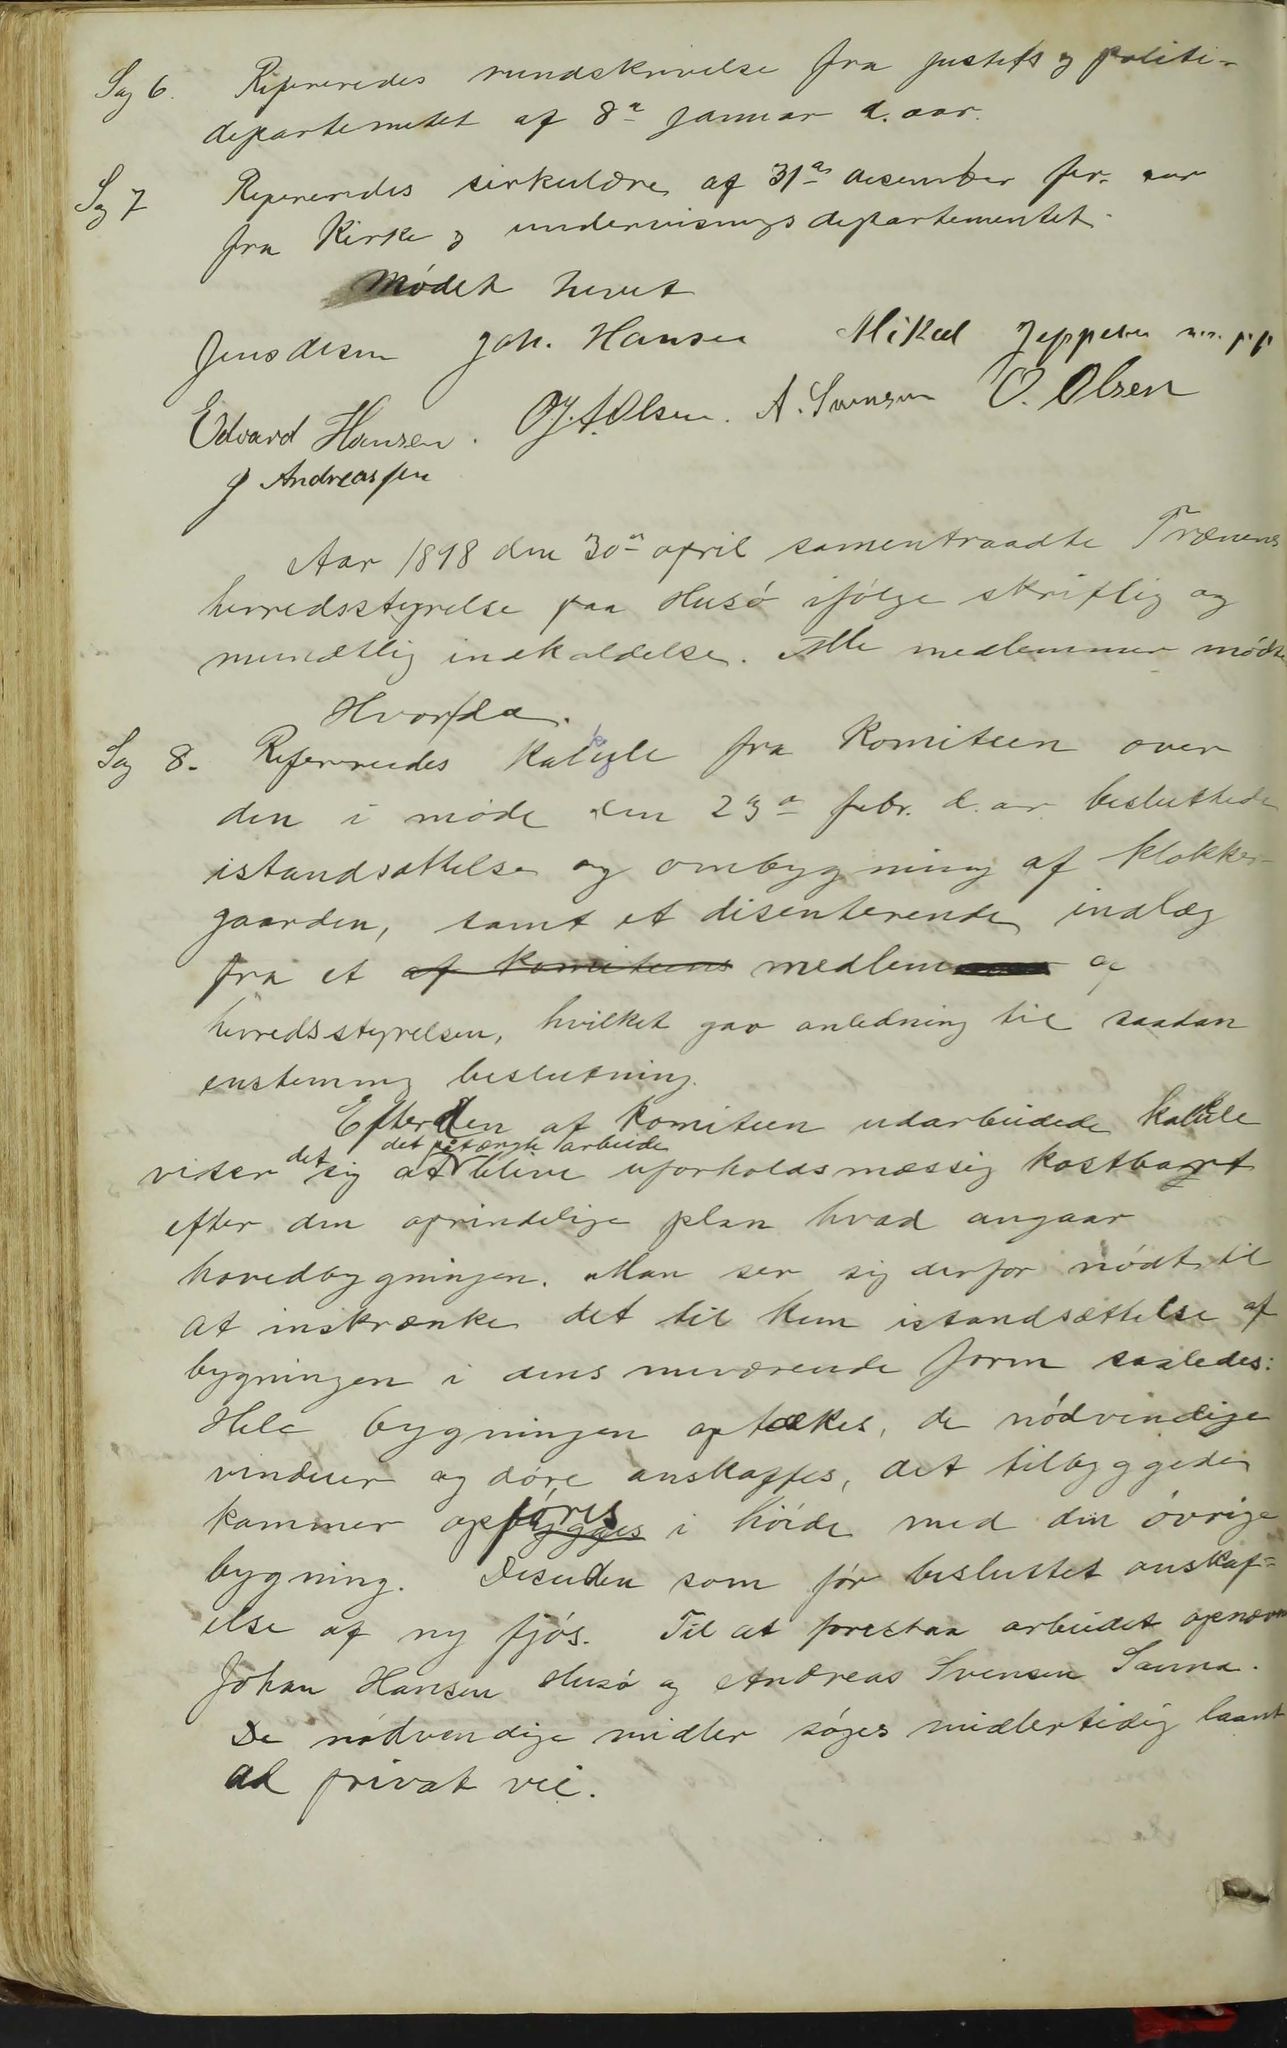 Sag 6. Refereredes rundskrivelse fra justits og politi-
departemetet af 8de januar d. aar.
Sag 7 Refereredes sirkulære af 31te desember for. aar
fra Kirke og undervisnings departementet.
Mödet hevet
Jens Olsen Joh. Hansen Mikal Jeppesen m.p.p
Edvard Hansen. O.J.A. Olsen. A. Svensen O. Olsen
J Andreassen
Aar 1898 den 30te april samentraadte Trænens
herredsstyrelse paa Husö ifölge skriftlig og
mundtlig indkaldelse. Alle medlemmer mödte
Hvorda.
Sag 8. Refereredes Kalkyle fra Komiteen over
den i möde den 23de febr. d. aar besluttede
istandsættelse og ombygning af klokker-
gaarden, samt et disenterende indlæg
fra et af Komiteens medlem af
herredsstyrelsen, hvilket gav anledning til saadan
enstemmig beslutning.
Efter den af Komiteen udarbeidede Kalkule
viser det sig at det paatænkte arbeide blive uforholdsmæssig kostbart
efter den oprindelige plan hvad angaar
hovedbygningen. Man ser sig derfor nödt til
at inskrænke det til kun istandsættelse af
bygningen i dens nuværende form saaledes:
Hele bygningen optækkes, de nödvendige
vinduer og döre anskaffes, det tilbyggede
kammer opbygges föres i höide med den övrige
bygning. Desuden som för besluttet anskaf-
else af ny fjös. Til at forestaa arbeidet opnævn
Johan Hansen Husö og Andreas Svensen Sanna.
De nödvendige midler söges midlertidig laant
ad privat vei.